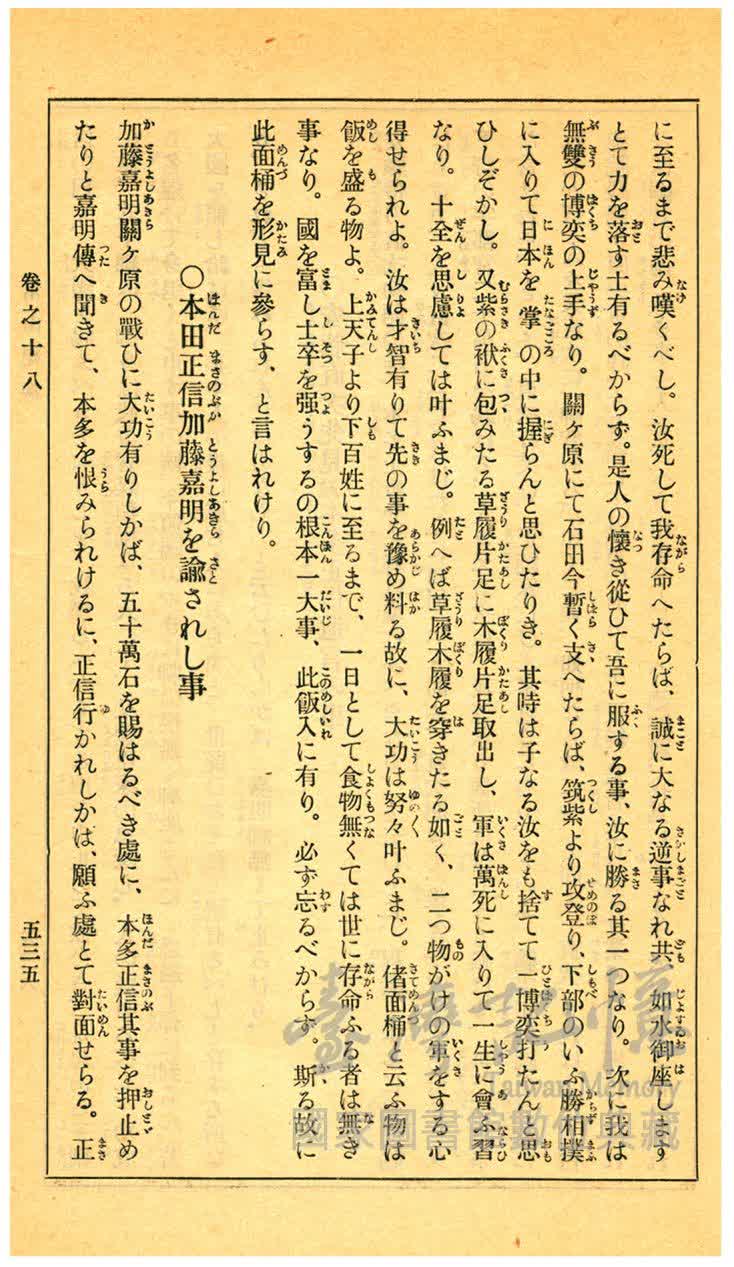 に至るまで悲み嘆くべし。汝死して我存命へたらば、誠に大なる逆事なれ共、如水御座します
とて力を落す士有るべからず。是人の懷き從ひて吾に服する事、汝に勝る其一つなり。次に我は
無雙の博奕の上手なり。關ヶ原にて石田今暫く支へたらば、筑紫より攻登り、下部のいふ勝相撲
に入りて日本を掌の中に握らんと思ひたりき。其時は子なる汝をも捨てて一博奕打たんと思
ひしぞかし。又紫の袱に包みたる草履片足に木履片足取出し、軍は萬死に入りて一生に會ふ習
なり。十全を思慮しては叶ふまじ。例へば草履木履を穿きたる如く、二つ物がけの軍をする心
得せられよ。汝は才智有りて先の事を豫め料る故に、大功は努々叶ふまじ。偖面桶と云ふ物は
飯を盛る物よ。上天子より下百姓に至るまで、一日として食物無くては世に存命ふる者は無き
事なり。國を富し士卒を强うするの根本一大事、此飯入に有り。必ず忘るべからず。斯る故に
此面桶を形見に參らす、と言はれけり。
○本田正信加藤嘉明を諭されし事
加藤嘉明關ヶ原の戰ひに大功有りしかば、五十萬石を賜はるべき處に、本多正信其事を押止め
たりと嘉明傳へ聞きて、本多を恨みられけるに、正信行かれしかば、願ふ處とて對面せらる。正
卷之十八
五三五
臺灣記憶
Taiwan Memory
國家圖書館數位典藏